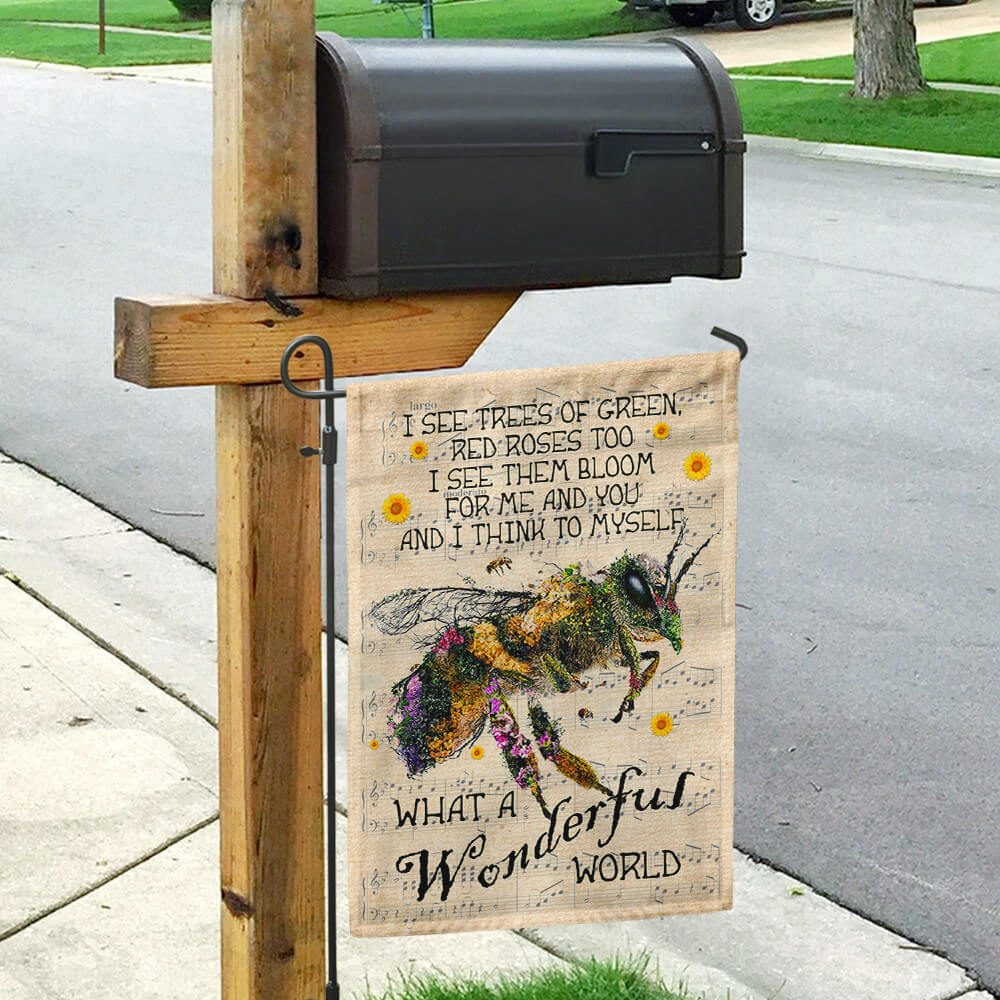 largo
I SEE TREES OF GREEN,
RED ROSES TOO
I SEE THEM BLOOM
moderato
FOR ME AND YOU
AND I THINK TO MYSELF
WHAT A
Wonderful
WORLD